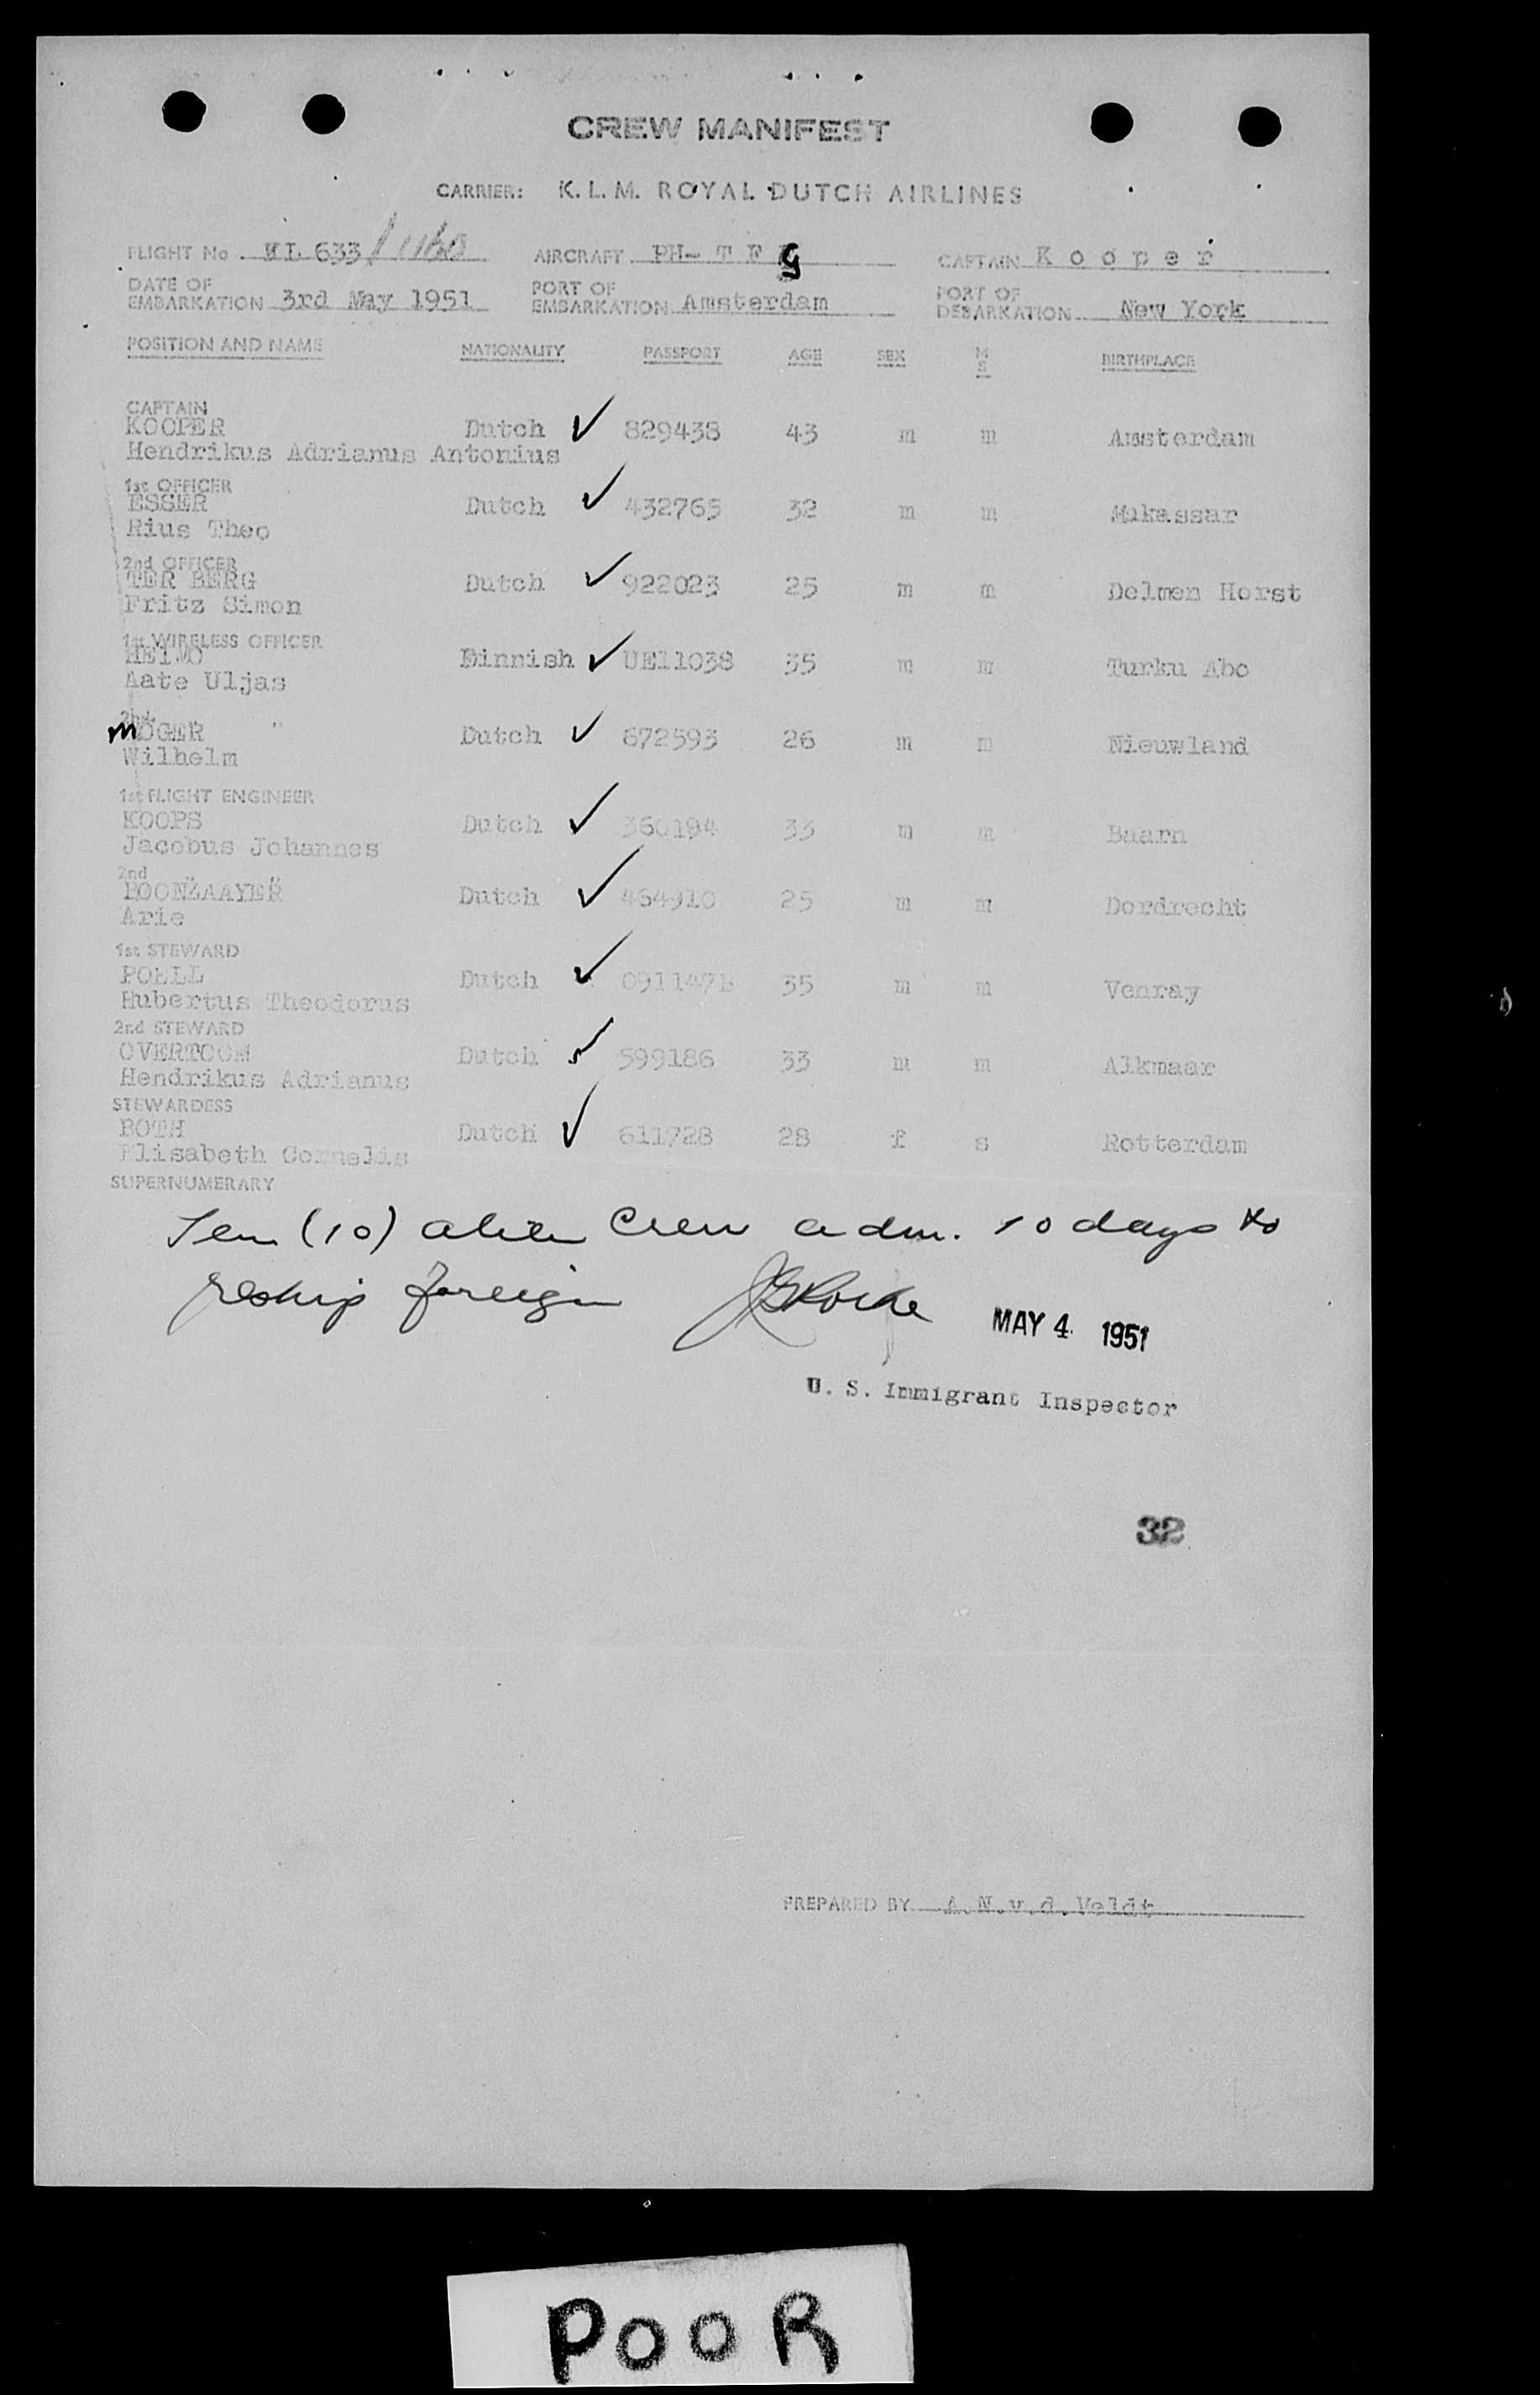 CREW MANIFEST
CARRIER: K. L. M. ROYAL DUTCH AIRLINES
FLIGHT No KL 633 / 1160 AIRCRAFT PH- T F G CAPTAIN K o o p e r
DATE OF EMBARKATION 3rd May 1951 PORT OF EMBARKATION Amsterdam PORT OF DEBARKATION New York
POSITION AND NAME NATIONALITY PASSPORT AGE SEX M S BIRTHPLACE
CAPTAIN
KOOPER Dutch ✓ 829438 43 m m Amsterdam
Hendrikus Adrianus Antonius
1st OFFICER
ESSER Dutch ✓ 432765 32 m m Makassar
Rius Theo
2nd OFFICER
TER BERG Dutch ✓ 922023 25 m m Delmen Horst
Fritz Simon
1st WIRELESS OFFICER
HEIMO Finnish ✓ UE11038 35 m m Turku Abo
Aate Uljas
2nd "
MOGER Dutch ✓ 672593 26 m m Nieuwland
Wilhelm
1st FLIGHT ENGINEER
KOOPS Dutch ✓ 360194 33 m m Baarn
Jacobus Johannes
2nd "
BOONZAAYER Dutch ✓ 464910 25 m m Dordrecht
Arie
1st STEWARD
POELL Dutch ✓ 091147B 35 m m Venray
Hubertus Theodorus
2nd STEWARD
OVERTOOM Dutch ✓ 599186 33 m m Alkmaar
Hendrikus Adrianus
STEWARDESS
BOTH Dutch ✓ 611728 28 f s Rotterdam
Elisabeth Cornelis
SUPERNUMERARY
Ten (10) alien Crew adm. 10 days to
reship foreign
MAY 4 1951
U. S. Immigrant Inspector
32
PREPARED BY A.N.v.d.Veldt
POOR